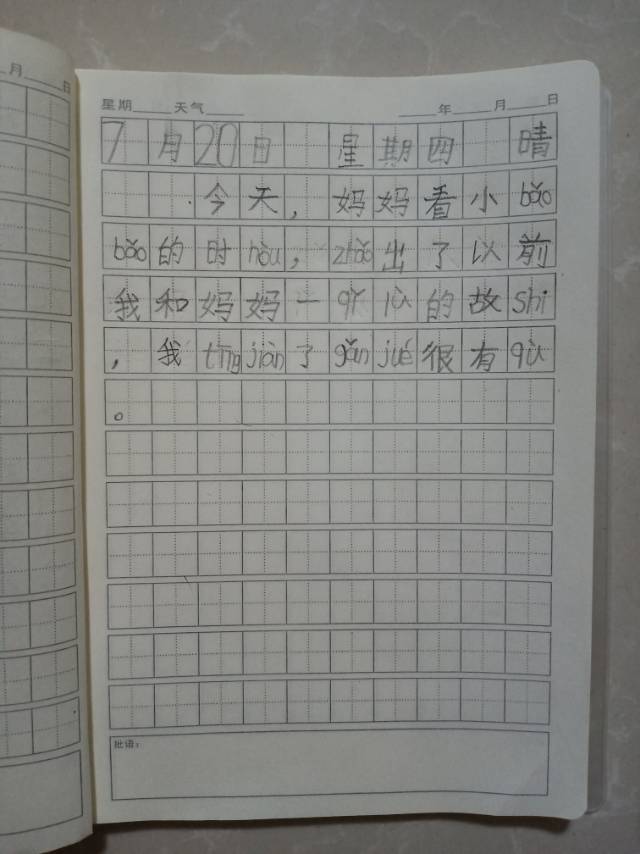 月 日
星期 天气 年 月 日
7月20日 星期四 晴
今天，妈妈看小bǎo
bǎo的时hòu，zhǎo出了以前
我和妈妈一qǐ lù的故shi
，我tīng jiàn了gǎn jué很有qù
。
批语：